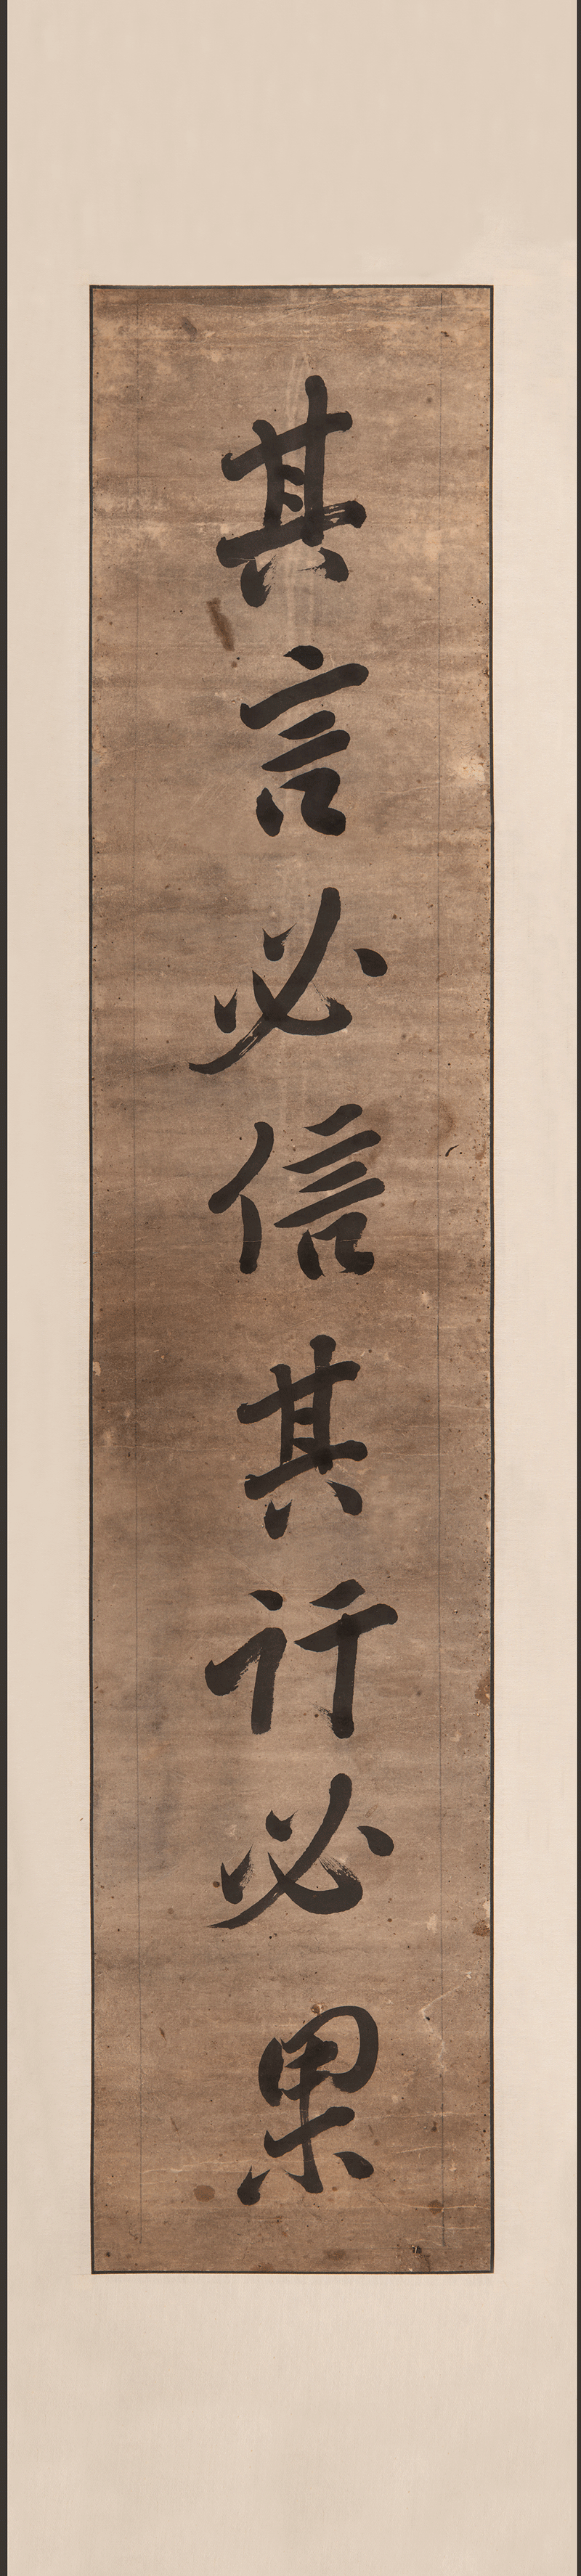 其言必信其行必果